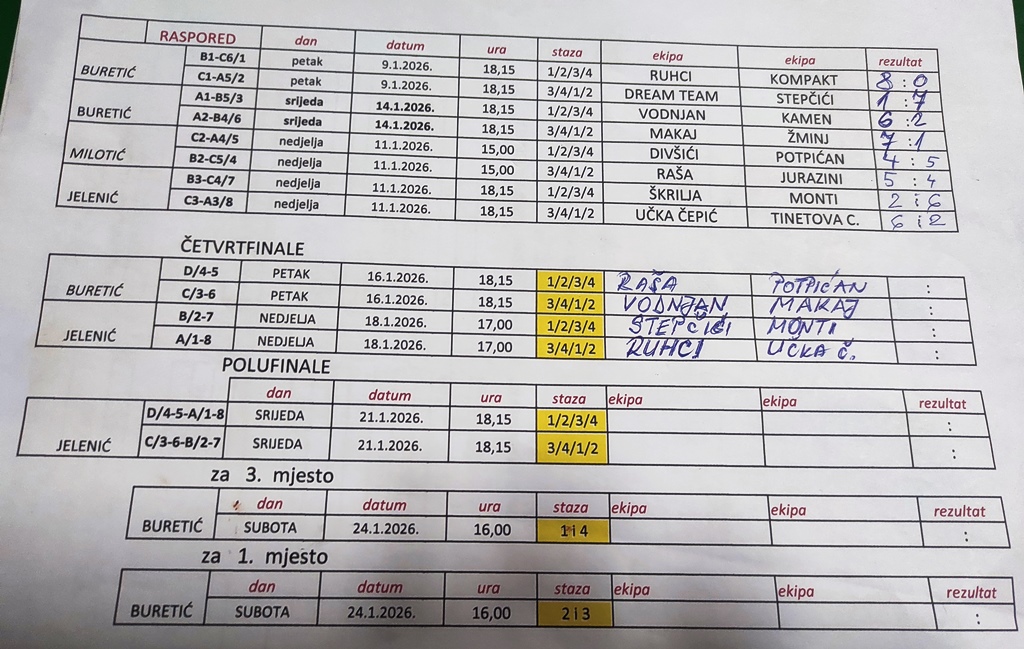 RASPORED dan datum ura staza ekipa ekipa rezultat
BURETIĆ B1-C6/1 petak 9.1.2026. 18,15 1/2/3/4 RUHCI KOMPAKT 8 : 0
C1-A5/2 petak 9.1.2026. 18,15 3/4/1/2 DREAM TEAM STEPČIĆI 1 : 7
BURETIĆ A1-B5/3 srijeda 14.1.2026. 18,15 1/2/3/4 VODNJAN KAMEN 6 : 2
A2-B4/6 srijeda 14.1.2026. 18,15 3/4/1/2 MAKAJ ŽMINJ 7 : 1
MILOTIĆ C2-A4/5 nedjelja 11.1.2026. 15,00 1/2/3/4 DIVŠIĆI POTPIĆAN 4 : 5
B2-C5/4 nedjelja 11.1.2026. 15,00 3/4/1/2 RAŠA JURAZINI 5 : 4
JELENIĆ B3-C4/7 nedjelja 11.1.2026. 18,15 1/2/3/4 ŠKRILJA MONTI 2 : 6
C3-A3/8 nedjelja 11.1.2026. 18,15 3/4/1/2 UČKA ČEPIĆ TINETOVA C. 6 : 2
ČETVRTFINALE
BURETIĆ D/4-5 PETAK 16.1.2026. 18,15 1/2/3/4 RAŠA POTPIĆAN :
C/3-6 PETAK 16.1.2026. 18,15 3/4/1/2 VODNJAN MAKAJ :
JELENIĆ B/2-7 NEDJELJA 18.1.2026. 17,00 1/2/3/4 STEPČIĆI MONTI :
A/1-8 NEDJELJA 18.1.2026. 17,00 3/4/1/2 RUHCI UČKA Č. :
POLUFINALE
dan datum ura staza ekipa ekipa rezultat
JELENIĆ D/4-5-A/1-8 SRIJEDA 21.1.2026. 18,15 1/2/3/4 :
C/3-6-B/2-7 SRIJEDA 21.1.2026. 18,15 3/4/1/2 :
za 3. mjesto
dan datum ura staza ekipa ekipa rezultat
BURETIĆ SUBOTA 24.1.2026. 16,00 1 i 4 :
za 1. mjesto
dan datum ura staza ekipa ekipa rezultat
BURETIĆ SUBOTA 24.1.2026. 16,00 2 i 3 :